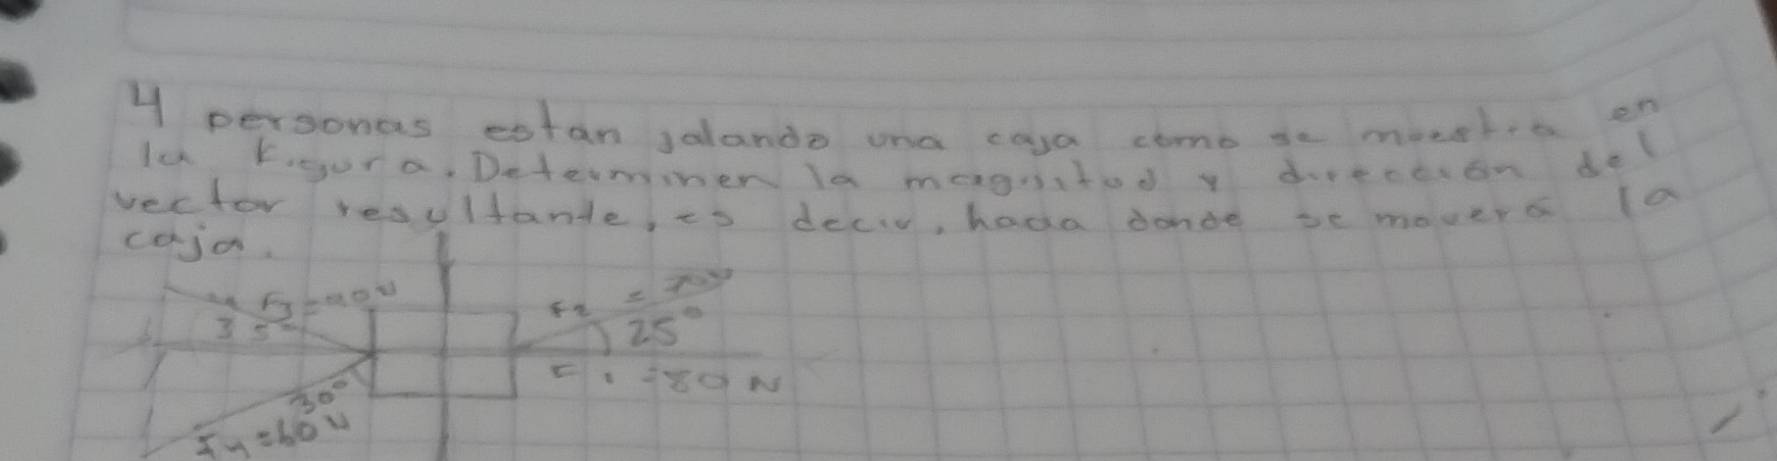 4 personas estan jalando una caja como se muestra en
la figura. Determinen la magnitud y dirección del
vector resultante, es decir, hacia donde se movera la
caja.
F3=90N
35°
F2 = 70N
25°
F1=80N
30°
F4=60N